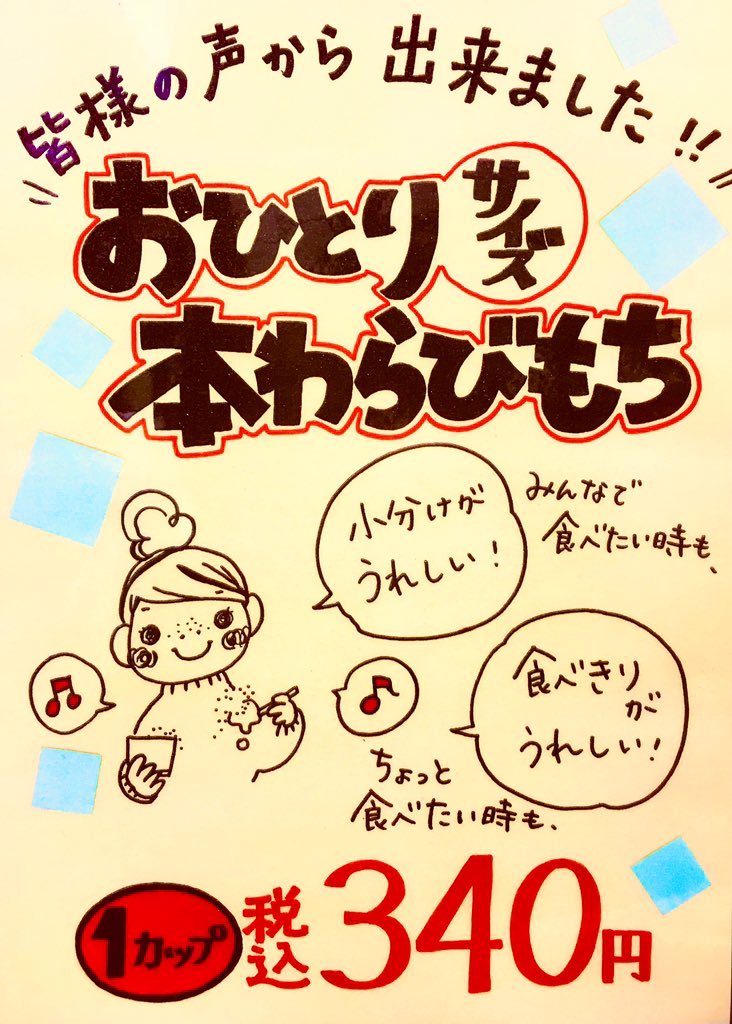 皆様の声から出来ました!!
おひとりサイズ
本わらびもち
小分けが
うれしい!
みんなで
食べたい時も、
食べきり
が
うれしい!
ちょっと
食べたい時も、
1カップ
税込340円